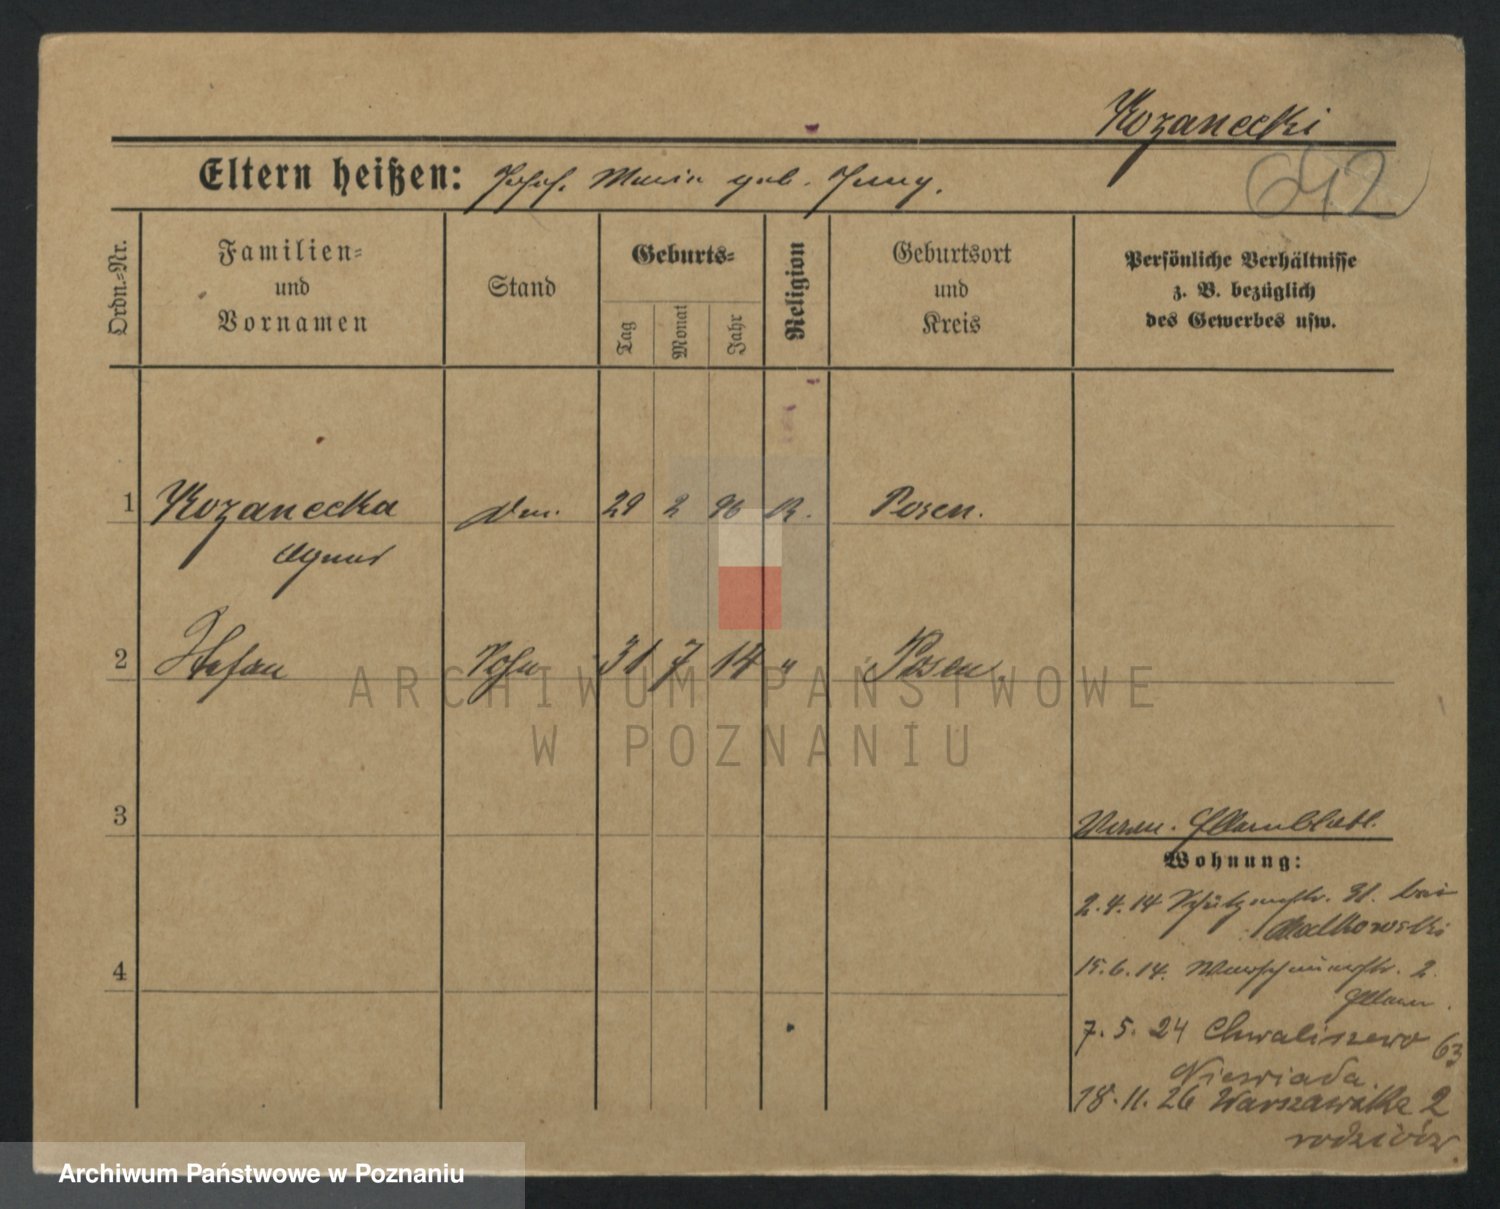 Kozanecki
642
Eltern heißen: Josef. Maria geb. Jung.
Ordn.=Nr.
Familien=
und
Vornamen
Stand
Geburts=
Tag
Monat
Jahr
Religion
Geburtsort
und
Kreis
Persönliche Verhältnisse
z. B. bezüglich
des Gewerbes usw.
1 Kozanecka 29 2 96 K. Posen.
Agnes
2 Stefan Sohn 31 7 14 " Posen.
3
Elternblatt.
Wohnung:
4
2.4.14 Schützenstr. 31. bei
Malkowski
15.6.14. Warschauerstr. 2.
Eltern.
7.5.24 Chwaliszewo 63
Niewiada.
18.11.26 Warszawska 2
rodziców
ARCHIWUM PAŃSTWOWE
W POZNANIU
Archiwum Państwowe w Poznaniu